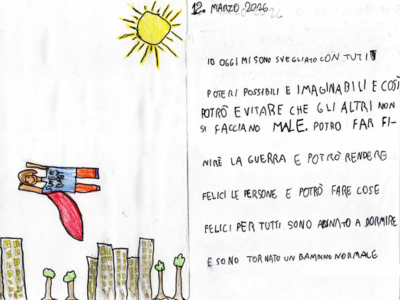 12. MARZO 2026
IO OGGI MI SONO SVEGLIATO CON TUTI
POTERI POSSIBILI E IMAGINABILI E COSÌ
POTRÒ EVITARE CHE GLI ALTRI NON
SI FACCIANO MALE. POTRO FAR FI-
NIRE LA GUERRA E POTRÒ RENDERE
FELICI LE PERSONE E POTRÒ FARE COSE
FELICI PER TUTTI SONO A DORMIRE
E SONO TORNATO UN BAMBINO NORMALE